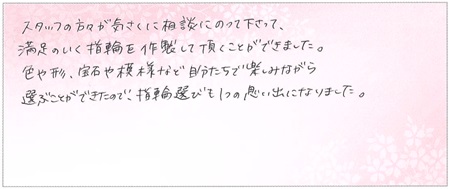 スタッフの方々が気さくに相談にのって下さって、
満足のいく指輪を作製して頂くことができました。
色や形、宝石や模様など自分たちで楽しみながら
選ぶことができたので、指輪選びも1つの思い出になりました。